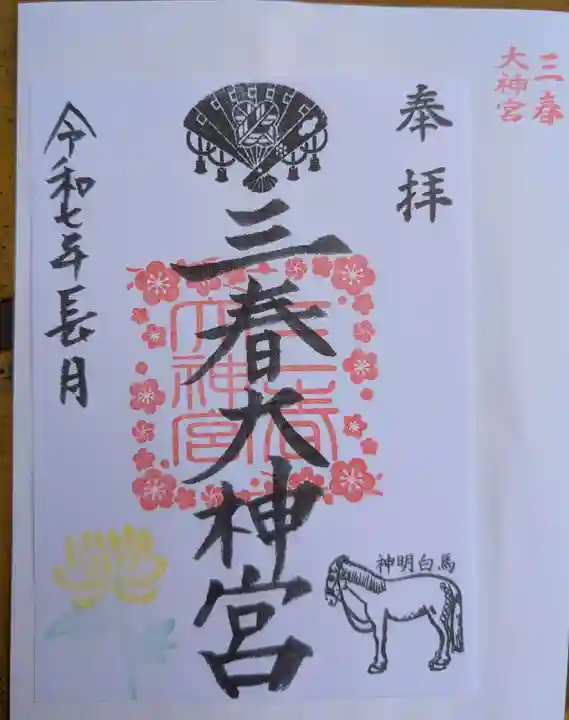 三春
大神宮
奉拝
三春大神宮
三春
大神宮
令和七年長月
神明白馬